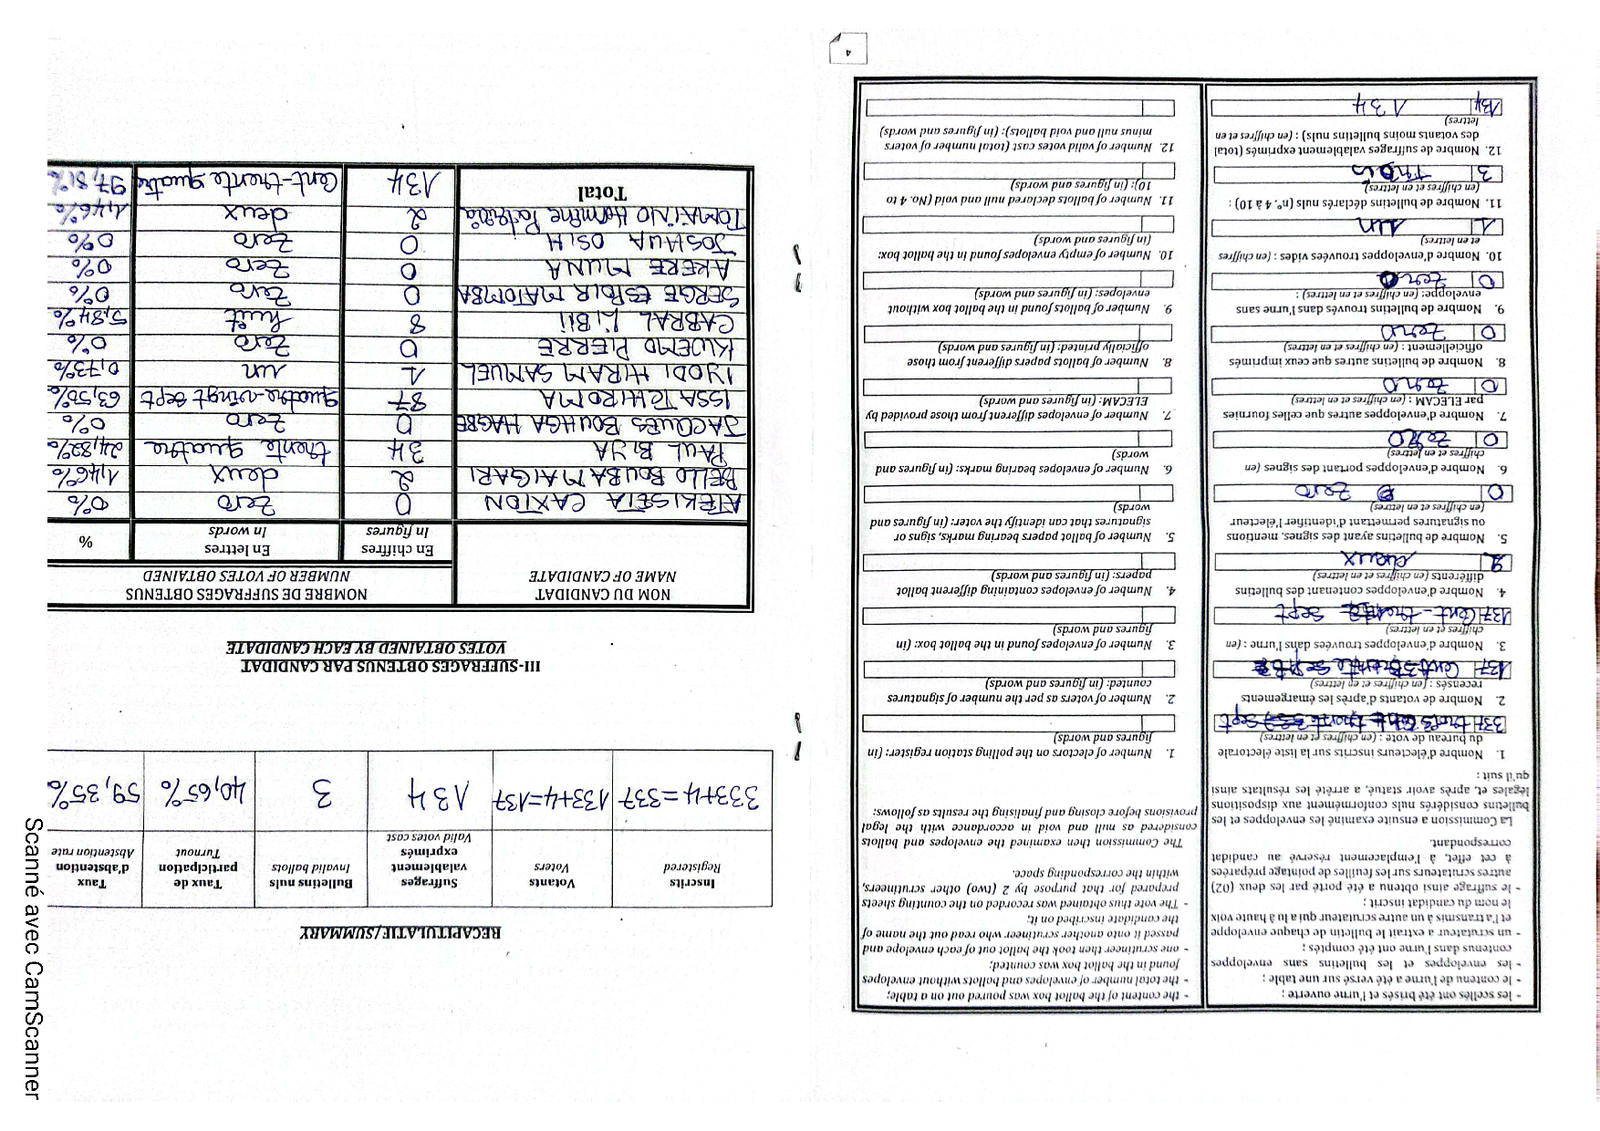 4
- les scellés ont été brisés et l'urne ouverte ;
- le contenu de l'urne a été versé sur une table ;
- les enveloppes et les bulletins sans enveloppes
contenus dans l'urne ont été comptés ;
- un scrutateur a extrait le bulletin de chaque enveloppe
et l'a transmis à un autre scrutateur qui a lu à haute voix
le nom du candidat inscrit ;
- le suffrage ainsi obtenu a été porté par les deux (02)
autres scrutateurs sur les feuilles de pointage préparées
à cet effet, à l'emplacement réservé au candidat
correspondant.
La Commission a ensuite examiné les enveloppes et les
bulletins considérés nuls conformément aux dispositions
légales et, après avoir statué, a arrêté les résultats ainsi
qu'il suit :
1. Nombre d'électeurs inscrits sur la liste électorale
du bureau de vote : (en chiffres et en lettres)
337 trois cent trente sept
2. Nombre de votants d'après les émargements
recensés : (en chiffres et en lettres)
137 Cent trente sept
3. Nombre d'enveloppes trouvées dans l'urne : (en
chiffres et en lettres)
137 Cent-trente sept
4. Nombre d'enveloppes contenant des bulletins
différents (en chiffres et en lettres)
2 deux
5. Nombre de bulletins ayant des signes, mentions
ou signatures permettant d'identifier l'électeur
(en chiffres et en lettres)
0 zero
6. Nombre d'enveloppes portant des signes (en
chiffres et en lettres)
0 zero
7. Nombre d'enveloppes autres que celles fournies
par ELECAM : (en chiffres et en lettres)
0 zero
8. Nombre de bulletins autres que ceux imprimés
officiellement : (en chiffres et en lettres)
0 zero
9. Nombre de bulletins trouvés dans l'urne sans
enveloppe: (en chiffres et en lettres) :
0 zero
10. Nombre d'enveloppes trouvées vides : (en chiffres
et en lettres)
1 un
11. Nombre de bulletins déclarés nuls (n°. 4 à 10) :
(en chiffres et en lettres)
3 trois
12. Nombre de suffrages valablement exprimés (total
des votants moins bulletins nuls) : (en chiffres et en
lettres)
134 134
- the content of the ballot box was poured out on a table;
- the total number of envelopes and ballots without envelopes
found in the ballot box was counted;
- one scrutineer then took the ballot out of each envelope and
passed it onto another scrutineer who read out the name of
the candidate inscribed on it;
- The vote thus obtained was recorded on the counting sheets
prepared for that purpose by 2 (two) other scrutineers,
within the corresponding space.
The Commission then examined the envelopes and ballots
considered as null and void in accordance with the legal
provisions before closing and finalising the results as follows:
1. Number of electors on the polling station register: (in
figures and words)
2. Number of voters as per the number of signatures
counted: (in figures and words)
3. Number of envelopes found in the ballot box: (in
figures and words)
4. Number of envelopes containing different ballot
papers: (in figures and words)
5. Number of ballot papers bearing marks, signs or
signatures that can identify the voter: (in figures and
words)
6. Number of envelopes bearing marks: (in figures and
words)
7. Number of envelopes different from those provided by
ELECAM: (in figures and words)
8. Number of ballots papers different from those
officially printed: (in figures and words)
9. Number of ballots found in the ballot box without
envelopes: (in figures and words)
10. Number of empty envelopes found in the ballot box:
(in figures and words)
11. Number of ballots declared null and void (No. 4 to
10): (in figures and words)
12. Number of valid votes cast (total number of voters
minus null and void ballots): (in figures and words)
RECAPITULATIF/SUMMARY
Inscrits Registered | Votants Voters | Suffrages valablement exprimés Valid votes cast | Bulletins nuls Invalid ballots | Taux de participation Turnout | Taux d'abstention Abstention rate
333+4=337 | 133+4=137 | 134 | 3 | 40,65% | 59,35%
III-SUFFRAGES OBTENUS PAR CANDIDAT
VOTES OBTAINED BY EACH CANDIDATE
NOM DU CANDIDAT NAME OF CANDIDATE | NOMBRE DE SUFFRAGES OBTENUS NUMBER OF VOTES OBTAINED
En chiffres In figures | En lettres In words | %
ATEKI SETA CAXTON 0 zero 0%
BELLO BOUBA MAIGARI 2 deux 1,46%
PAUL BIYA 34 trente quatre 24,82%
JACQUES BOUHGA HAGBE 0 zero 0%
ISSA TCHIROMA 87 quatre-vingt sept 63,50%
IYODI HIRAM SAMUEL 1 un 0,73%
KWEMO PIERRE 0 zero 0%
CABRAL LiBii 8 huit 5,84%
SERGE ESPOIR MATOMBA 0 zero 0%
AKERE MUNA 0 zero 0%
JOSHUA OSIH 0 zero 0%
TOMAÏNO Hermine Patricia 2 deux 1,46%
Total 134 Cent-trente quatre 97,81%
Scanné avec CamScanner